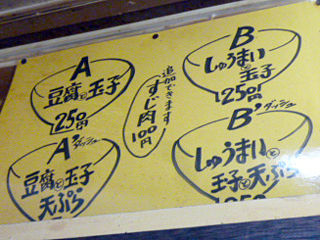 A
豆腐と玉子
250円
追加できます
すじ肉
100円
B
しゅうまいと
玉子
250円
A'ダッシュ
豆腐と玉子
天ぷら
B'ダッシュ
しゅうまいと
玉子と天ぷら